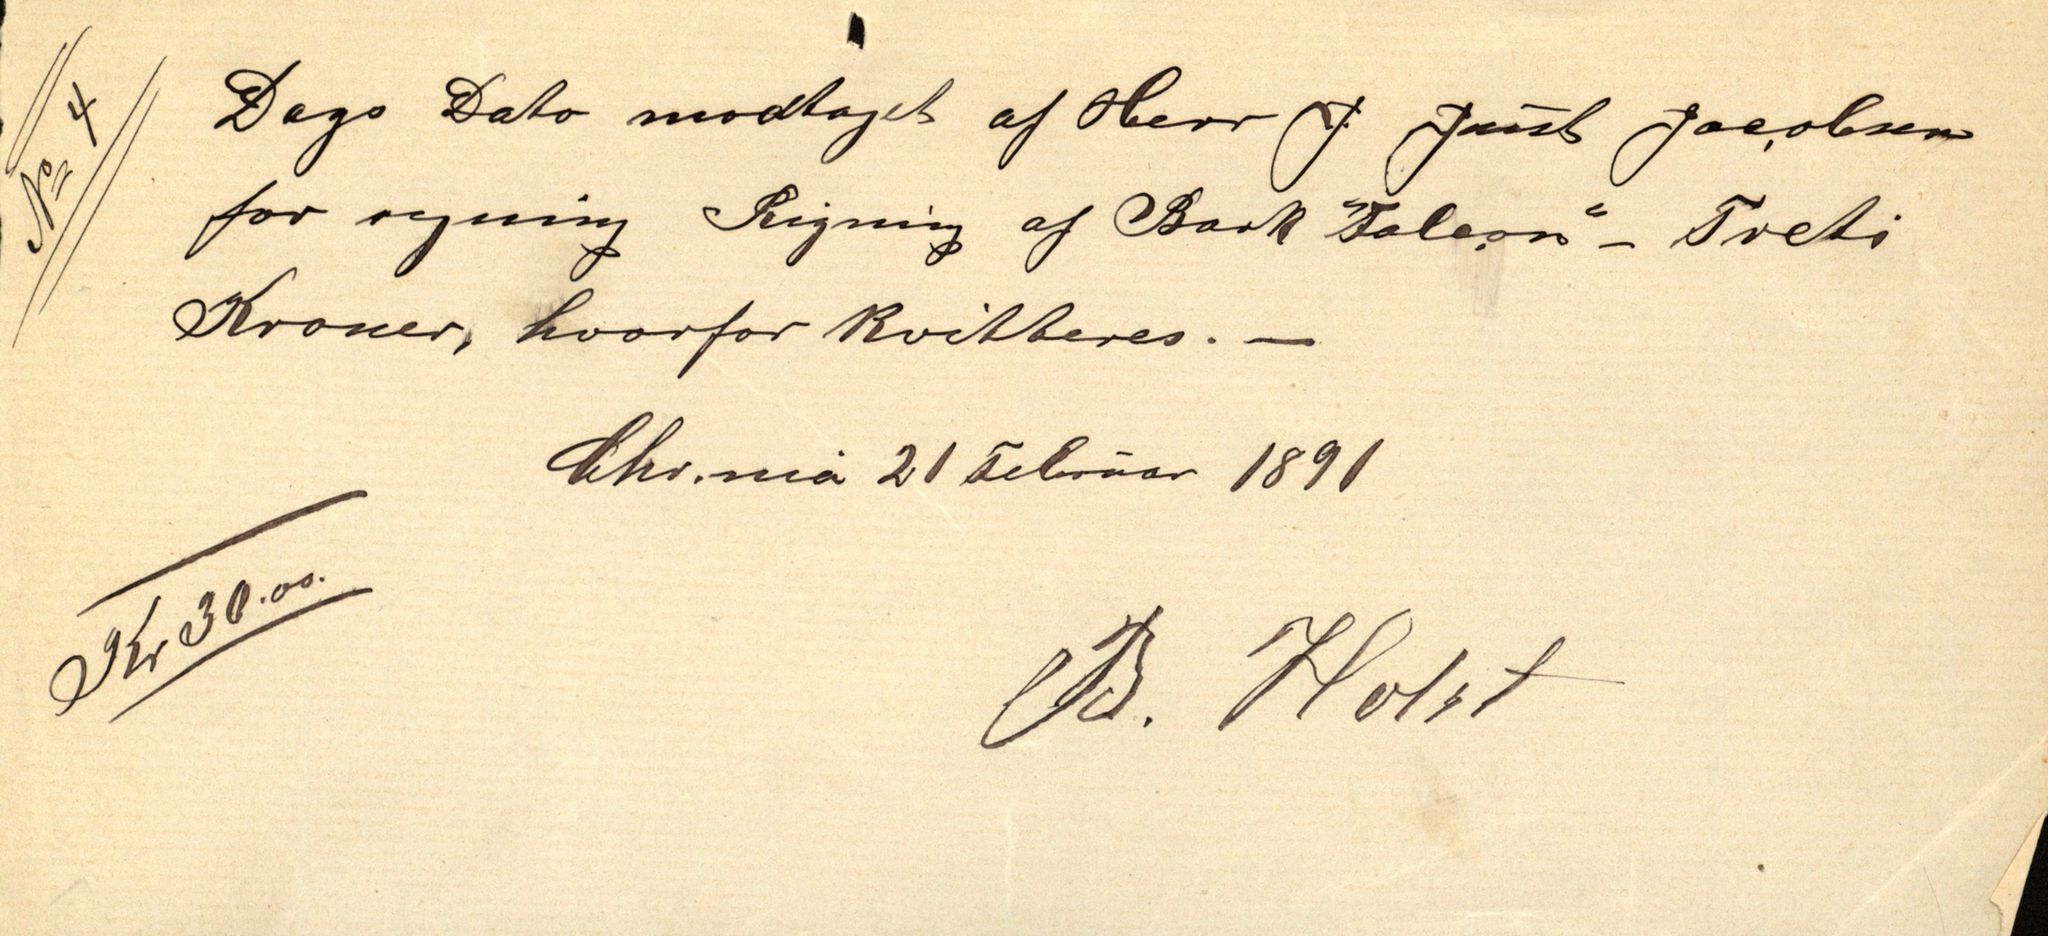 No 4
Dags Dato modtaget af Herr J. Just Jacobsen
for Rigning af Bark "Falcon" - Treti
Kroner, hvorfor kvitteres. -
Chr.nia 21 Februar 1891
Kr 30.00.
B. Holst